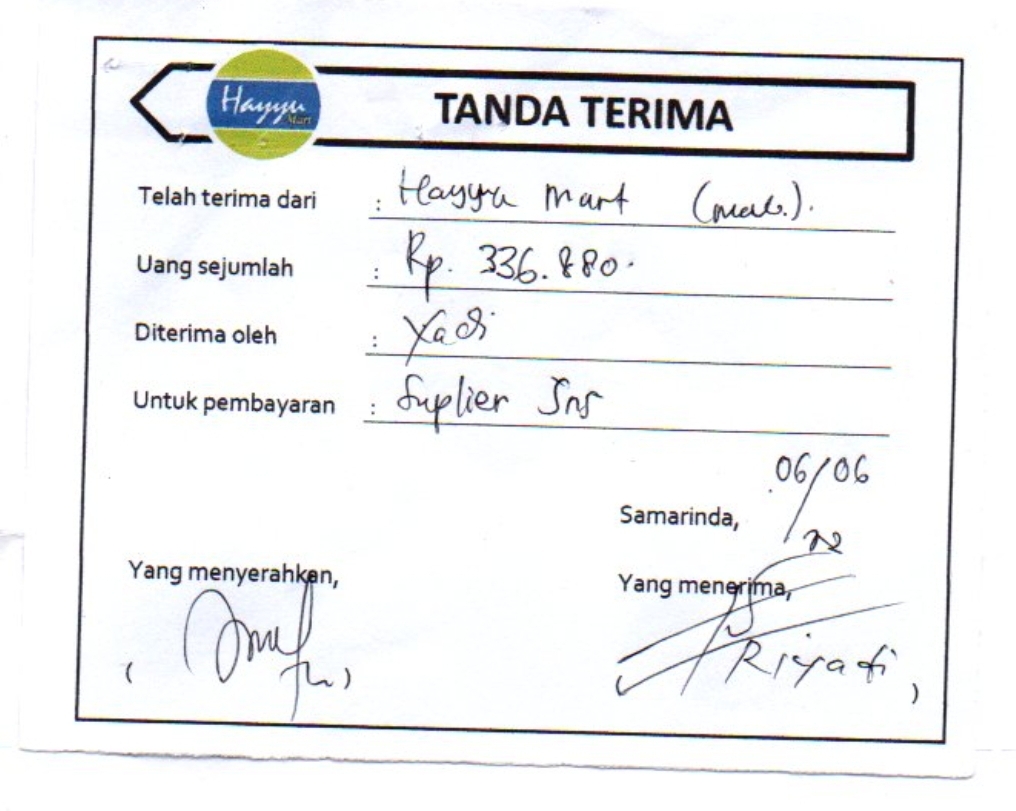 Hayyu Mart
TANDA TERIMA
Telah terima dari : Hayyu Mart (mab.).
Uang sejumlah : Rp. 336.880.
Diterima oleh : Yadi
Untuk pembayaran : Suplier Sns
06/06
Samarinda,
Yang menyerahkan, Yang menerima,
( ) Riyadi )